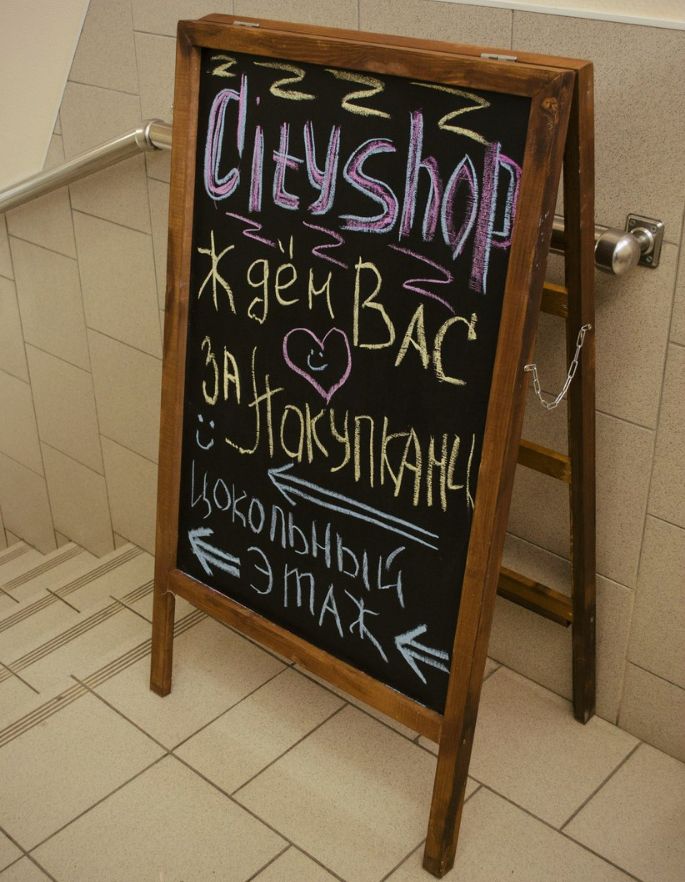 CityShop
Ждём ВАС
ЗА ПОКУПКАМИ
ЦОКОЛЬНЫЙ
ЭТАЖ